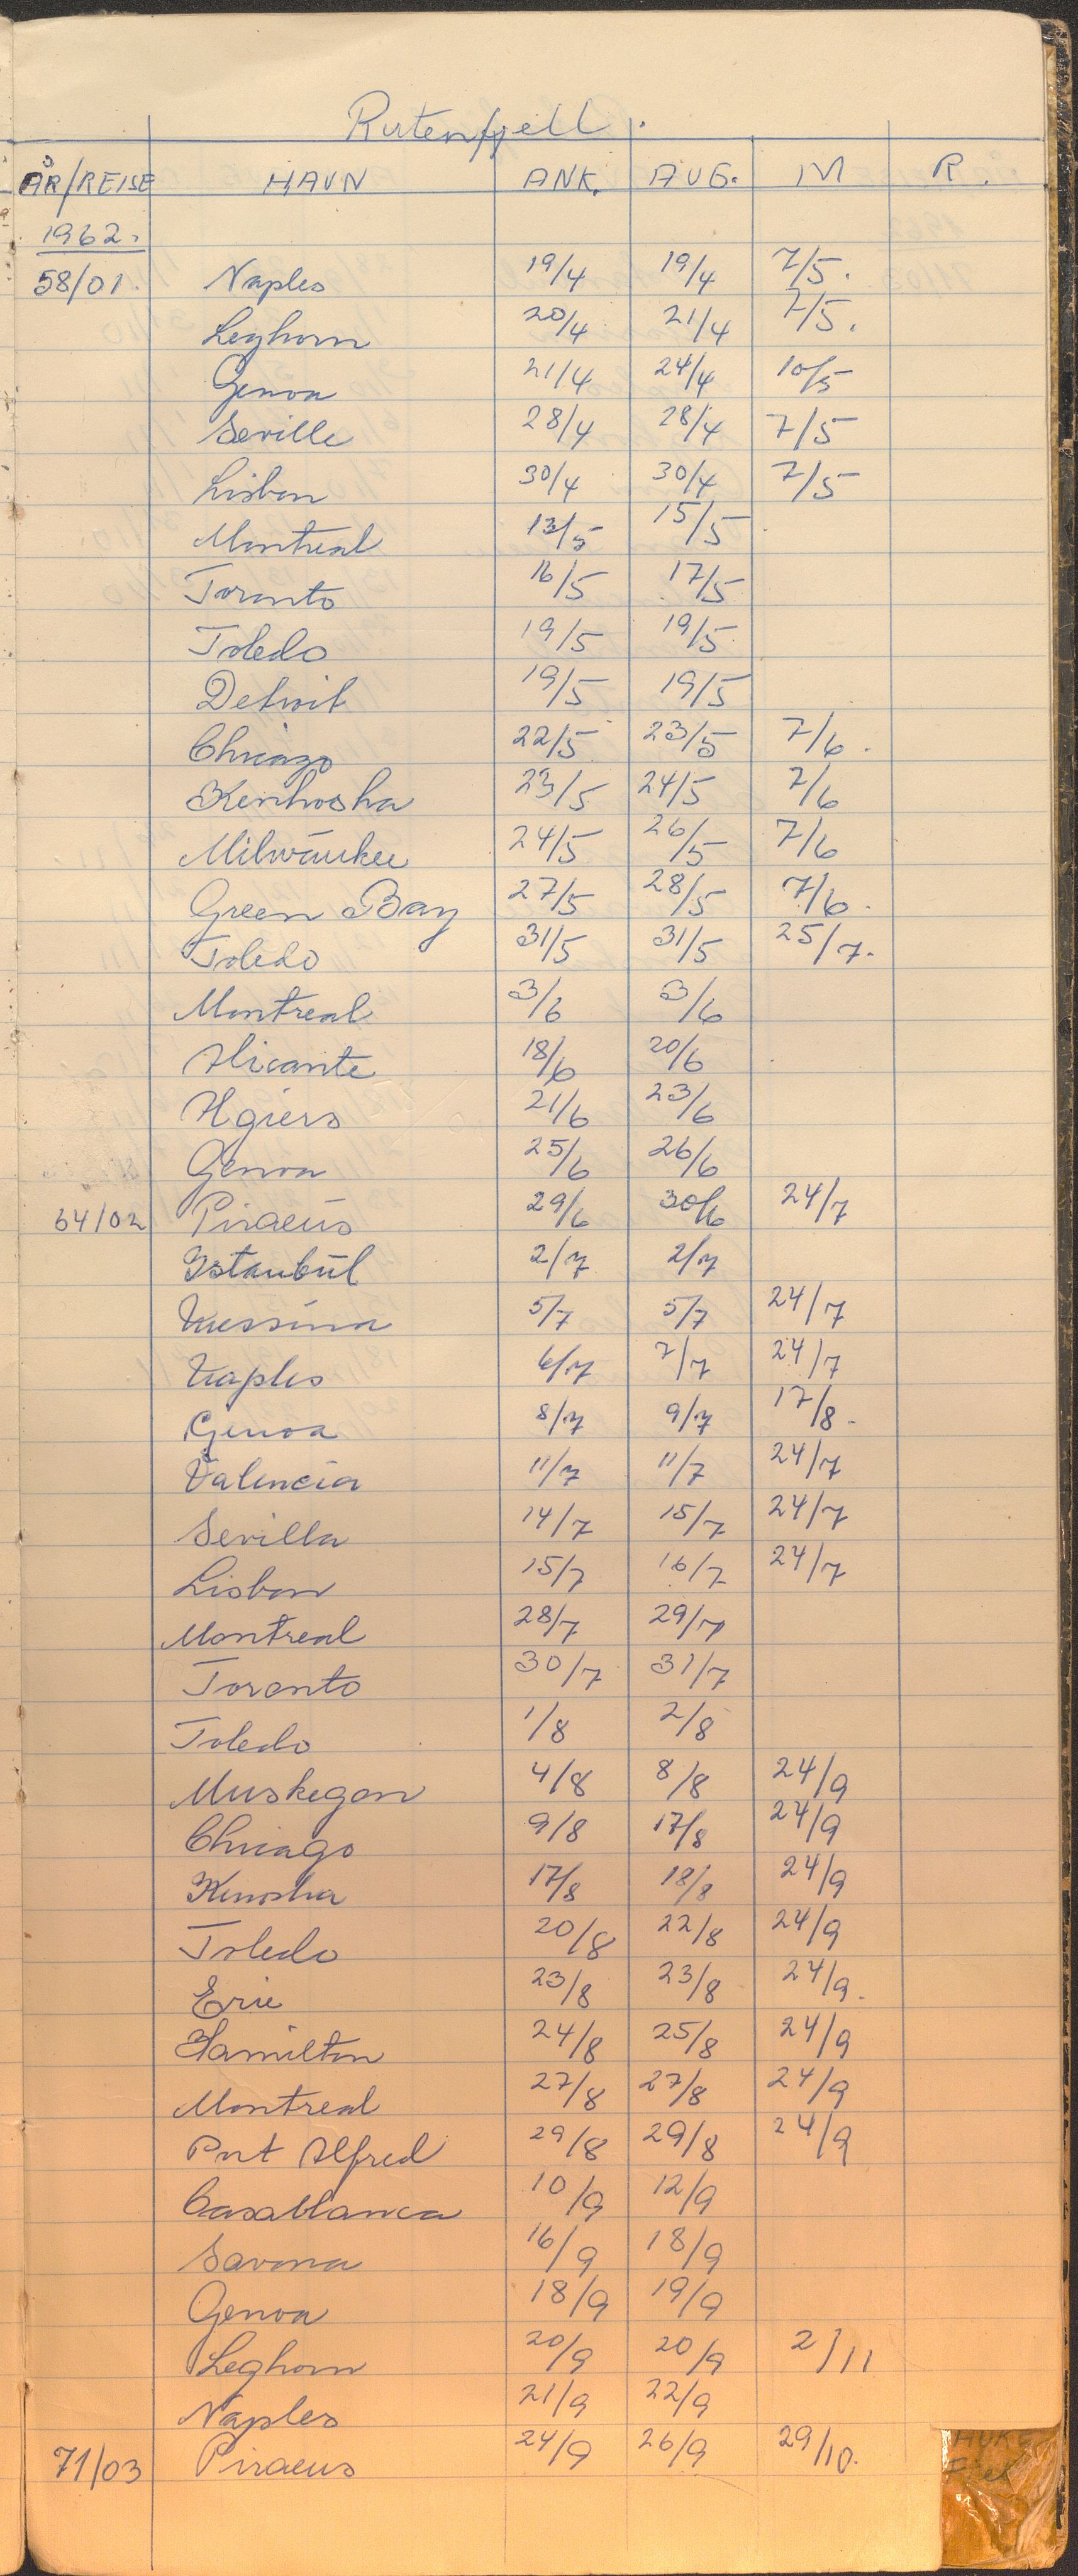 Rutenfjell.
ÅR/REISE HAVN ANK. AVG. M R.
1962.
58/01. Naples 19/4 19/4 7/5.
Leghorn 20/4 21/4 7/5.
Genoa 21/4 24/4 10/5
Seville 28/4 28/4 7/5
Lisbon 30/4 30/4 7/5
Montreal 13/5 15/5
Toronto 16/5 17/5
Toledo 19/5 19/5
Detroit 19/5 19/5
Chicago 22/5 23/5 7/6.
Kenhosha 23/5 24/5 7/6
Milwaukee 24/5 26/5 7/6
Green Bay 27/5 28/5 7/6.
Toledo 31/5 31/5 25/7.
Montreal 3/6 3/6
Alicante 18/6 20/6
Algiers 21/6 23/6
Genoa 25/6 26/6
64/02 Piraeus 29/6 30/6 24/7
Istanbul 2/7 2/7
Messina 5/7 5/7 24/7
Naples 6/7 7/7 24/7
Genoa 8/7 9/7 17/8.
Valencia 11/7 11/7 24/7
Sevilla 14/7 15/7 24/7
Lisbon 15/7 16/7 24/7
Montreal 28/7 29/7
Toronto 30/7 31/7
Toledo 1/8 2/8
Muskegon 4/8 8/8 24/9
Chicago 9/8 17/8 24/9
Kenosha 17/8 18/8 24/9
Toledo 20/8 22/8 24/9
Erie 23/8 23/8 24/9.
Hamilton 24/8 25/8 24/9
Montreal 27/8 27/8 24/9
Port Alfred 29/8 29/8 24/9
Casablanca 10/9 12/9
Savona 16/9 18/9
Genoa 18/9 19/9
Leghorn 20/9 20/9 2/11
Naples 21/9 22/9
71/03 Piraeus 24/9 26/9 29/10.